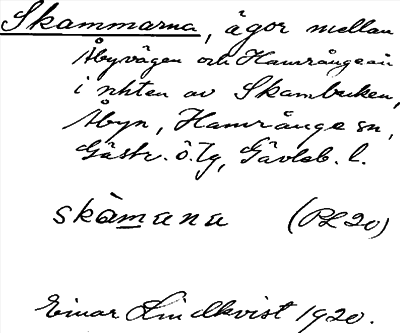 Skammarna, ägor mellan
Åbyvägen och Hamrångeån
i nhten av Skambacken,
Åbyn, Hamrånge sn,
Gästr. ö. Tg, Gävleb. l.
skàmana (PL 20)
Einar Lindkvist 1920.